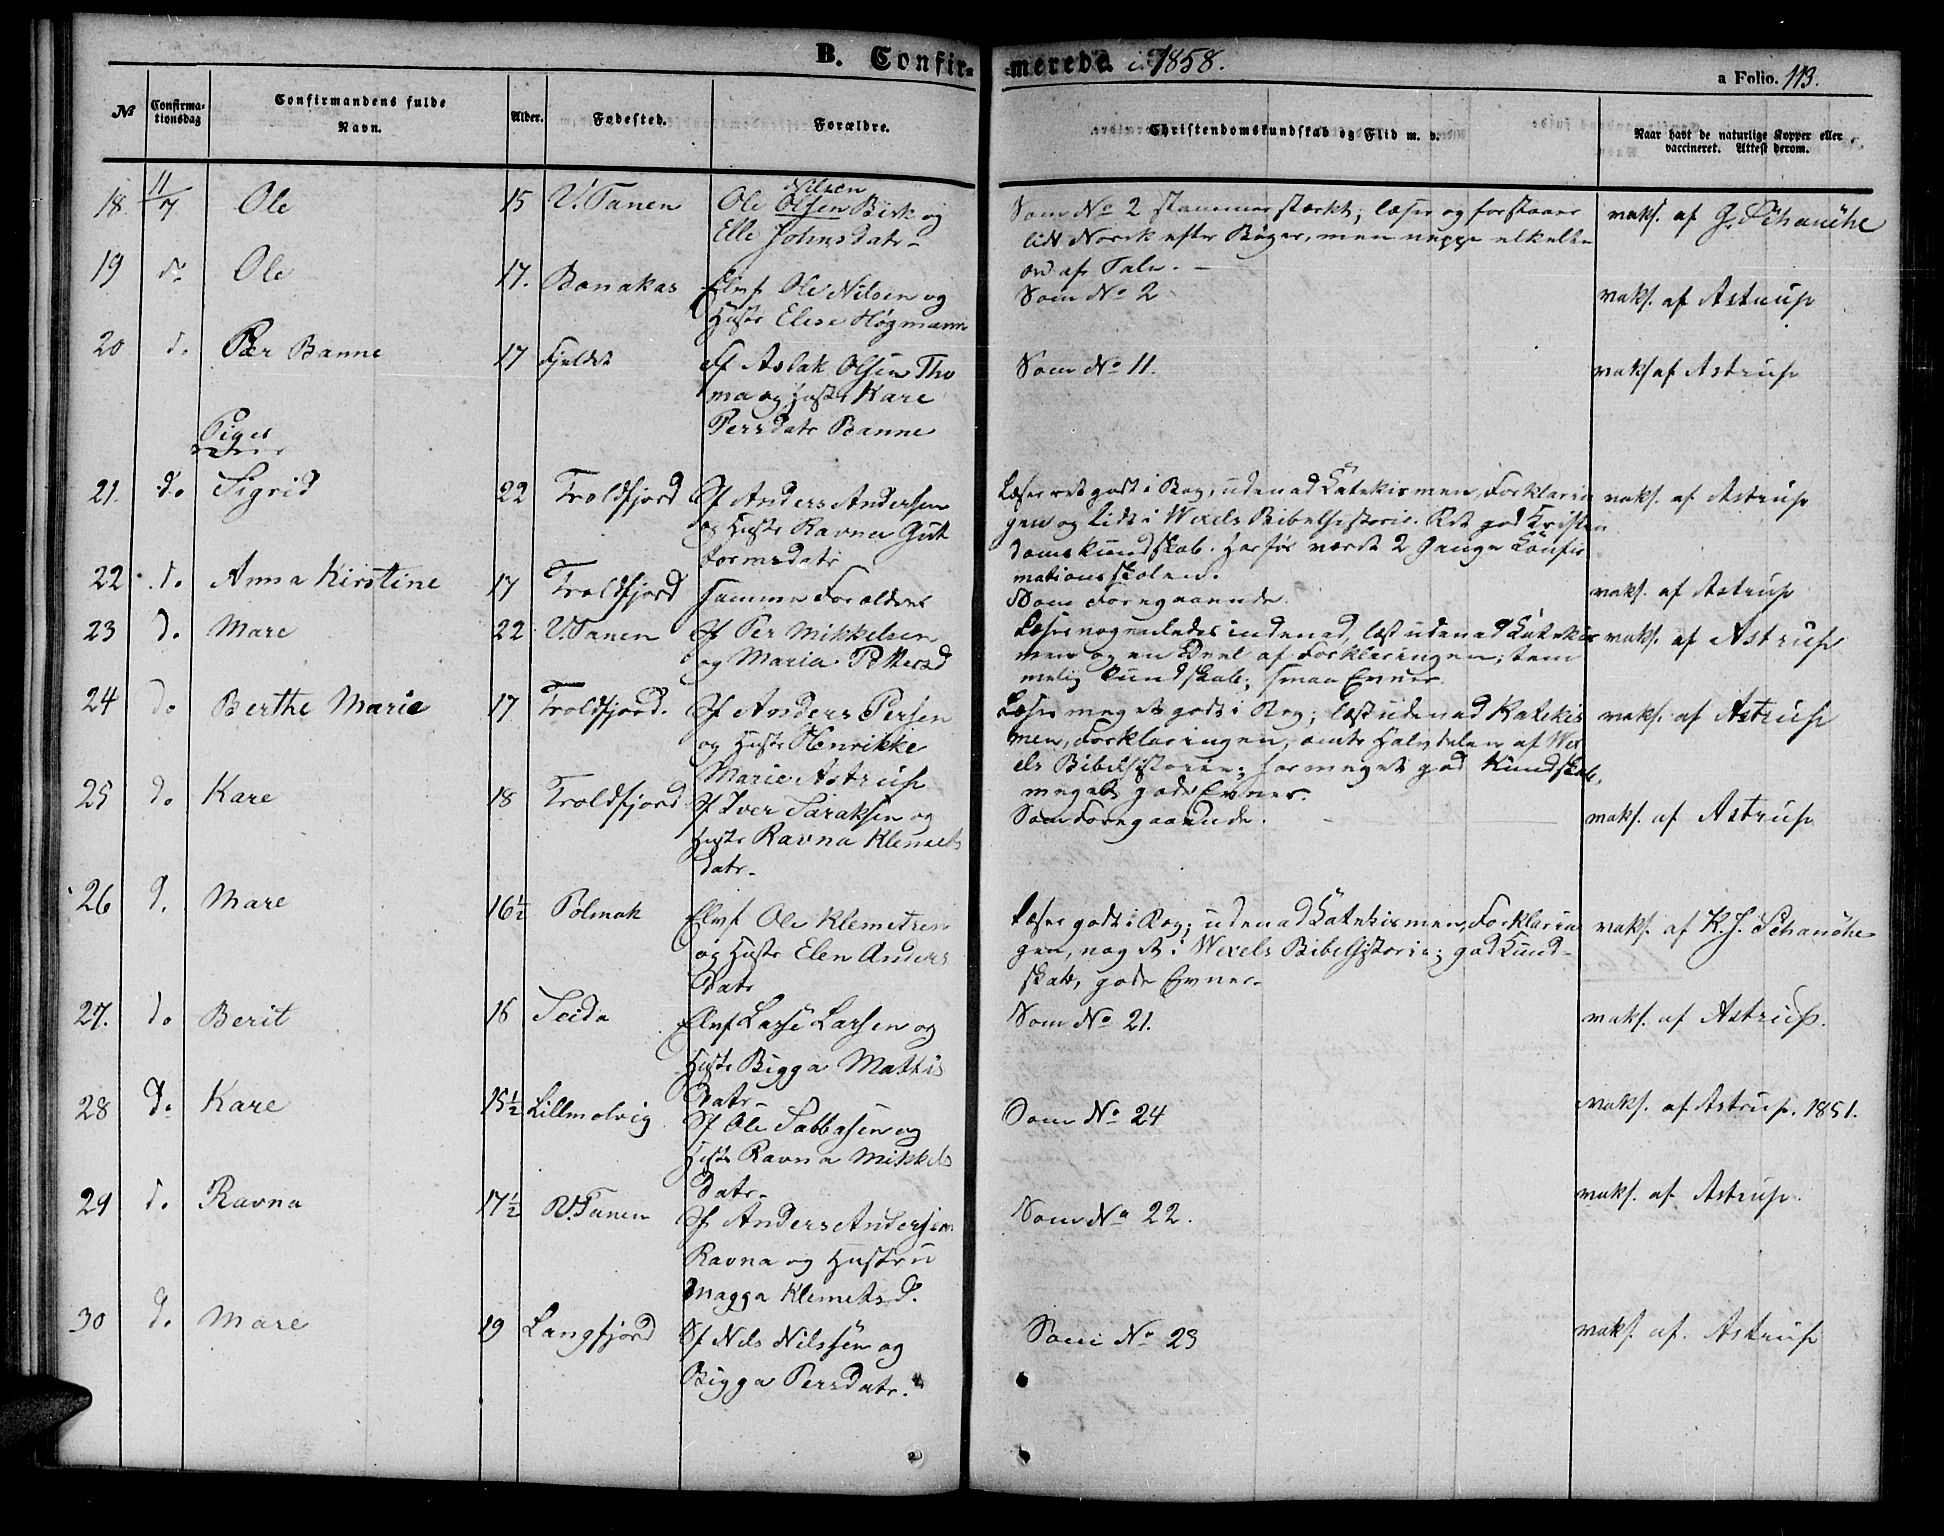 B. Confir-merede i 1858.
a Folio. 113.
№ Confirmationsdag Confirmandens fulde Navn. Alder. Fødested. Forældre. Christendomskundskab og Flid m. v. Naar havt de naturlige Kopper eller vaccineret. Attest derom.
18 11/7 Ole 15 V. Tanen Ole Olsen Nilsen Birk og
Elle Johnsdatr
Som No 2 stammer stærkt, læser og forstaaer
lidt Norsk efter Bøger, men neppe
ord af Tale.
vaks. af G. Schanche
19 do Ole 17. Bonakas Elvf Ole Nilsen og
Hustr Elese Høgmann
Som No 2
vaks. af Astrup
20 d. Per Banne 17 Fjeldet Ff Aslak Olsen Tho
ma og Hustr Kare
Persdatr Banne
Som No 11.
vaks af Astrup
Piger
21. do Sigrid 22 Troldfjord Sf Anders Andersen
og Hustr Ravna Gut
tormsdatr
Læser ret godt i Bog, udenad Katekismen, Forklarin
gen og lidt i Wexels Bibelhistorie. Ret god Kristen
domskundskab. Har før været 2 Gange Konfir
mationsskolen.
vaks. af Astrup
22 do Anna Kirstine 17 Troldfjord samme Forældre
Som Foregaaende.
vaks. af Astrup
23 d. Mare 22 V. Tanen Sf Per Mikkelsen
og Maria Pettersd
Læser nogenledes indenad, læst udenad Katekis
men og en Deel af Forklaringen; tem
melig Kundskab; smaa Evner.
vaks. af Astrup
24 do Berthe Marie 17 Troldfjord. Sf Anders Persen
og Hustr Henrikke
Marie Astrup
Læser meget godt i Bog; læst udenad Katekis
men, Forklaringen, omtr Halvdelen af Wex
els Bibelhistorie; har meget god Kundskab,
meget gode Evner.
vaks. af Astrup
25 do Kare 18 Troldfjord Sf Iver Saraksen og
Hustr Ravna Klemets
datr
Som Foregaaende.
vaks. af Astrup
26 d. Mare 16½ Polmak Elvf Ole Klemetsen
og Hustr Elen Anders
datr
Læser godt i Bog; udenad Katekismen, Forklarin
gen, noget i Wexels Bibelhistorie; god Kund-
skab, gode Evner.
vaks. af K. J. Schanche
27. do Berit 16 Seida Elvf Lasse Larsen og
Hustr Bigga Mathis
datr
Som No 21.
vaks. af Astrup.
28 do Kare 15½ Lillmolvig Sf Ole Sabbasen og
Hustr Ravna Mikkels
datr
Som No 24
vaks. af Astrup. 1851.
29 do Ravna 17½ V. Tanen Sf Anders Andersen
Ravna og Hustru
Magga Klemetsd.
Som No 22.
vaks. af Astrup.
30 d. Mare 19 Langfjord Sf Nils Nilssen og
Bigga Persdatr.
Som No 23
vaks. af Astrup